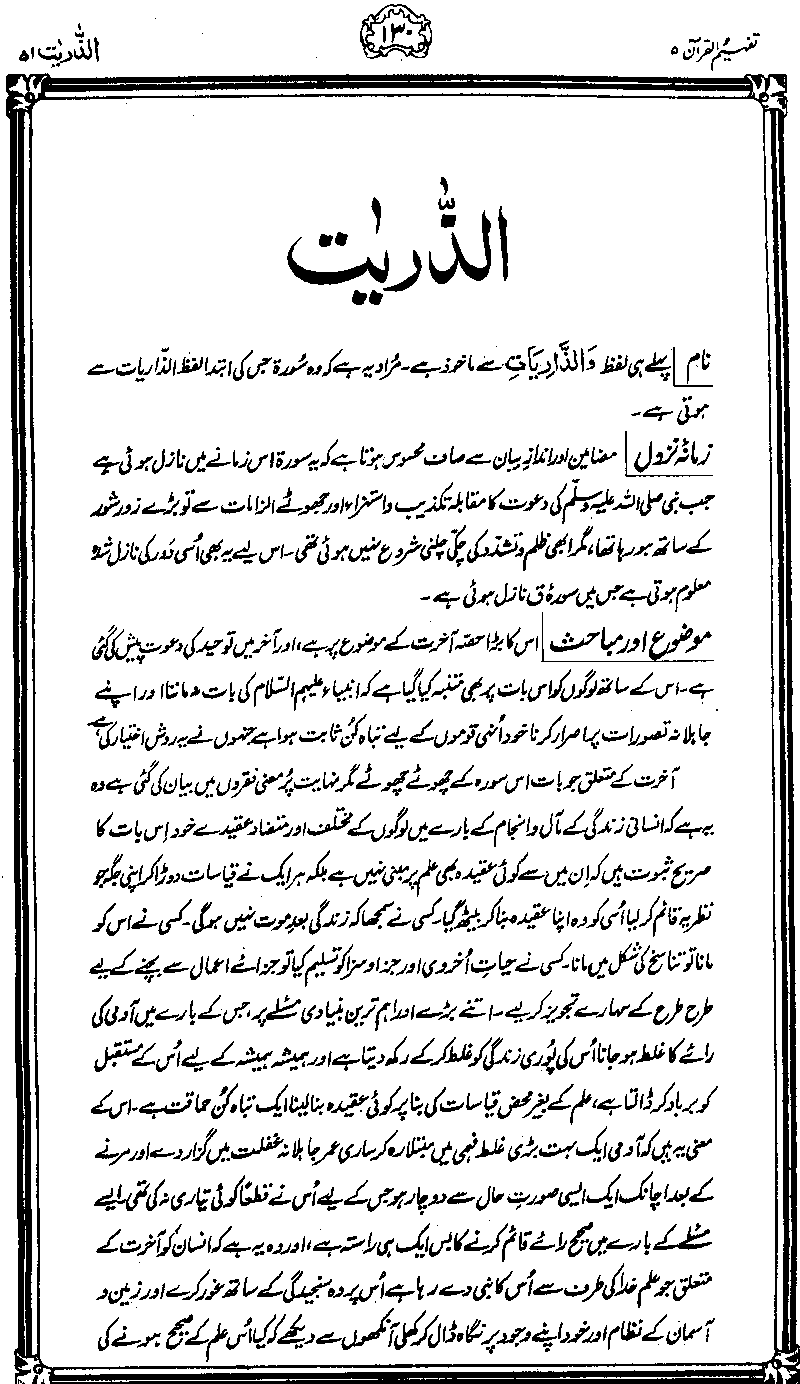 تفہیم القرآن ۵
۱۳۰
الذّٰریٰت ۵۱
الذّٰریٰت
نام پہلے ہی لفظ وَالذَّارِیَاتِ سے ماخوذ ہے۔ مُراد یہ ہے کہ وہ سُورۃ جس کی ابتدا لفظ الذّاریات سے
ہوتی ہے۔
زمانۂ نزول مضامین اور اندازِ بیان سے صاف محسوس ہوتا ہے کہ یہ سورۃ اس زمانے میں نازل ہوئی ہے
جب نبی صلی اللہ علیہ وسلّم کی دعوت کا مقابلہ تکذیب و استہزاء اور جھوٹے الزامات سے تو بڑے زور شور
کے ساتھ ہو رہا تھا، مگر ابھی ظلم و تشدّد کی چکّی چلنی شروع نہیں ہوئی تھی۔ اس لیے یہ بھی اُسی دَور کی نازل شدہ
معلوم ہوتی ہے جس میں سورۂ ق نازل ہوئی ہے۔
موضوع اور مباحث اس کا بڑا حصّہ آخرت کے موضوع پر ہے، اور آخر میں توحید کی دعوت پیش کی گئی
ہے۔ اس کے ساتھ لوگوں کو اس بات پر بھی متنبہ کیا گیا ہے کہ انبیاء علیہم السّلام کی بات نہ ماننا اور اپنے
جاہلانہ تصورات پر اصرار کرنا خود اُنہی قوموں کے لیے تباہ کُن ثابت ہوا ہے جنہوں نے یہ روش اختیار کی ہے
آخرت کے متعلق جو بات اس سورہ کے چھوٹے چھوٹے مگر نہایت پُر معنی فقروں میں بیان کی گئی ہے وہ
یہ ہے کہ انسانی زندگی کے مآل و انجام کے بارے میں لوگوں کے مختلف اور متضاد عقیدے خود اِس بات کا
صریح ثبوت ہیں کہ اِن میں سے کوئی عقیدہ بھی علم پر مبنی نہیں ہے بلکہ ہر ایک نے قیاسات دوڑا کر اپنی جگہ جو
نظریہ قائم کر لیا اُسی کو وہ اپنا عقیدہ بنا کر بیٹھ گیا۔ کسی نے سمجھا کہ زندگی بعدِ موت نہیں ہوگی۔ کسی نے اس کو
مانا تو تناسخ کی شکل میں مانا۔ کسی نے حیاتِ اُخروی اور جزا و سزا کو تسلیم کیا تو جزائے اعمال سے بچنے کے لیے
طرح طرح کے سہارے تجویز کر لیے۔ اتنے بڑے اور اہم ترین بنیادی مسئلے پر، جس کے بارے میں آدمی کی
رائے کا غلط ہو جانا اُس کی پُوری زندگی کو غلط کر کے رکھ دیتا ہے اور ہمیشہ ہمیشہ کے لیے اُس کے مستقبل
کو برباد کر ڈالتا ہے، علم کے بغیر محض قیاسات کی بنا پر کوئی عقیدہ بنا لینا ایک تباہ کُن حماقت ہے۔ اس کے
معنی یہ ہیں کہ آدمی ایک بہت بڑی غلط فہمی میں مبتلا رہ کر ساری عمر جاہلانہ غفلت میں گزار دے اور مرنے
کے بعد اچانک ایک ایسی صورتِ حال سے دوچار ہو جس کے لیے اُس نے قطعًا کوئی تیاری نہ کی تھی۔ ایسے
مسئلے کے بارے میں صحیح رائے قائم کرنے کا بس ایک ہی راستہ ہے، اور وہ یہ ہے کہ انسان کو آخرت کے
متعلق جو علم خدا کی طرف سے اُس کا نبی دے رہا ہے اُس پر وہ سنجیدگی کے ساتھ غور کرے اور زمین و
آسمان کے نظام اور خود اپنے وجود پر نگاہ ڈال کر کھلی آنکھوں سے دیکھے کہ کیا اُس علم کے صحیح ہونے کی